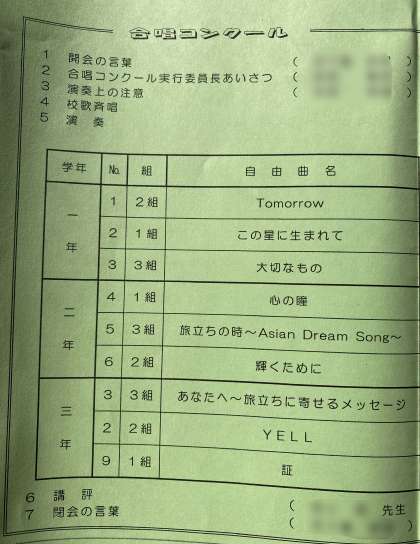 合唱コンクール
1 開会の言葉 (
2 合唱コンクール実行委員長あいさつ (
3 演奏上の注意 (
4 校歌斉唱
5 演 奏
学年 № 組 自由曲名
一年
1 2組 Tomorrow
2 1組 この星に生まれて
3 3組 大切なもの
二年
4 1組 心の瞳
5 3組 旅立ちの時～Asian Dream Song～
6 2組 輝くために
三年
3 3組 あなたへ～旅立ちに寄せるメッセージ
2 2組 YELL
9 1組 証
6 講 評 ( 先生
7 閉会の言葉 ( )